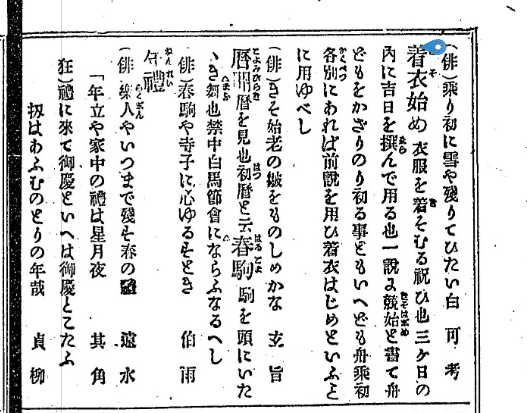 (俳)乗り初に雪や残りてひたい白 可考
着衣始め 衣服を着そむる祝ひ也三ケ日の
内に吉日を撰んで用る也一説よ競始と書て舟
どもをかざりのり初る事ともいへども舟乗初
各別にあれば前説を用ひ着衣はじめといふと
に用ゆべし
(俳)きそ始老の皺をものしめかな 玄旨
暦開 暦を見也初暦と云 春駒 駒を頭にいた
ゝき舞也禁中白馬節會にならふなるへし
(俳)春駒や寺子に心ゆるすとき 伯雨
年禮
(俳)楽人やいつまで残す春の 遠水
「年立や家中の禮は星月夜 其角
狂)禮に來て御慶といへは御慶とこたふ
扨はあふむのとりの年哉 貞柳